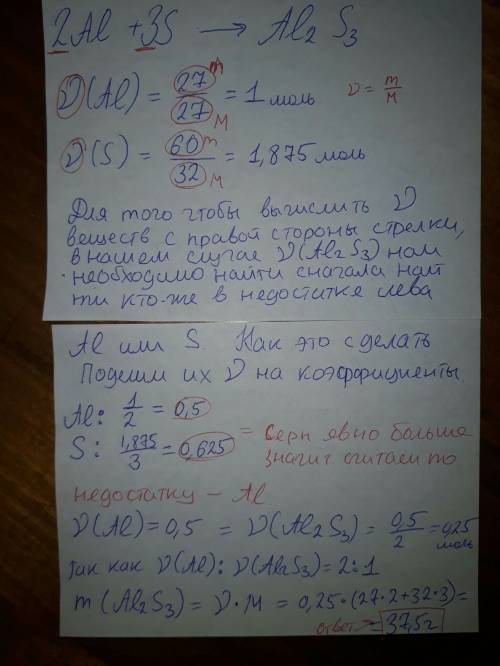 2Al + 3S → Al₂S₃
ν(Al) = 27 m / 27 M = 1 моль ν = m/M
ν(S) = 60 m / 32 M = 1,875 моль
Для того чтобы вычислить ν
веществ с правой стороны стрелки,
в нашем случае ν(Al₂S₃) нам
необходимо найти сначала най
ти кто-же в недостатке слева
Al или S. Как это сделать
Поделим их ν на коэффициенты.
Al: 1/2 = 0,5
S: 1,875/3 = 0,625 = Серы явно больше
значит считаем по
недостатку – Al
ν(Al) = 0,5 = ν(Al₂S₃) = 0,5/2 = 0,25 моль
так как ν(Al) : ν(Al₂S₃) = 2:1
m(Al₂S₃) = ν·M = 0,25·(27·2+32·3) =
ответ = 37,5г